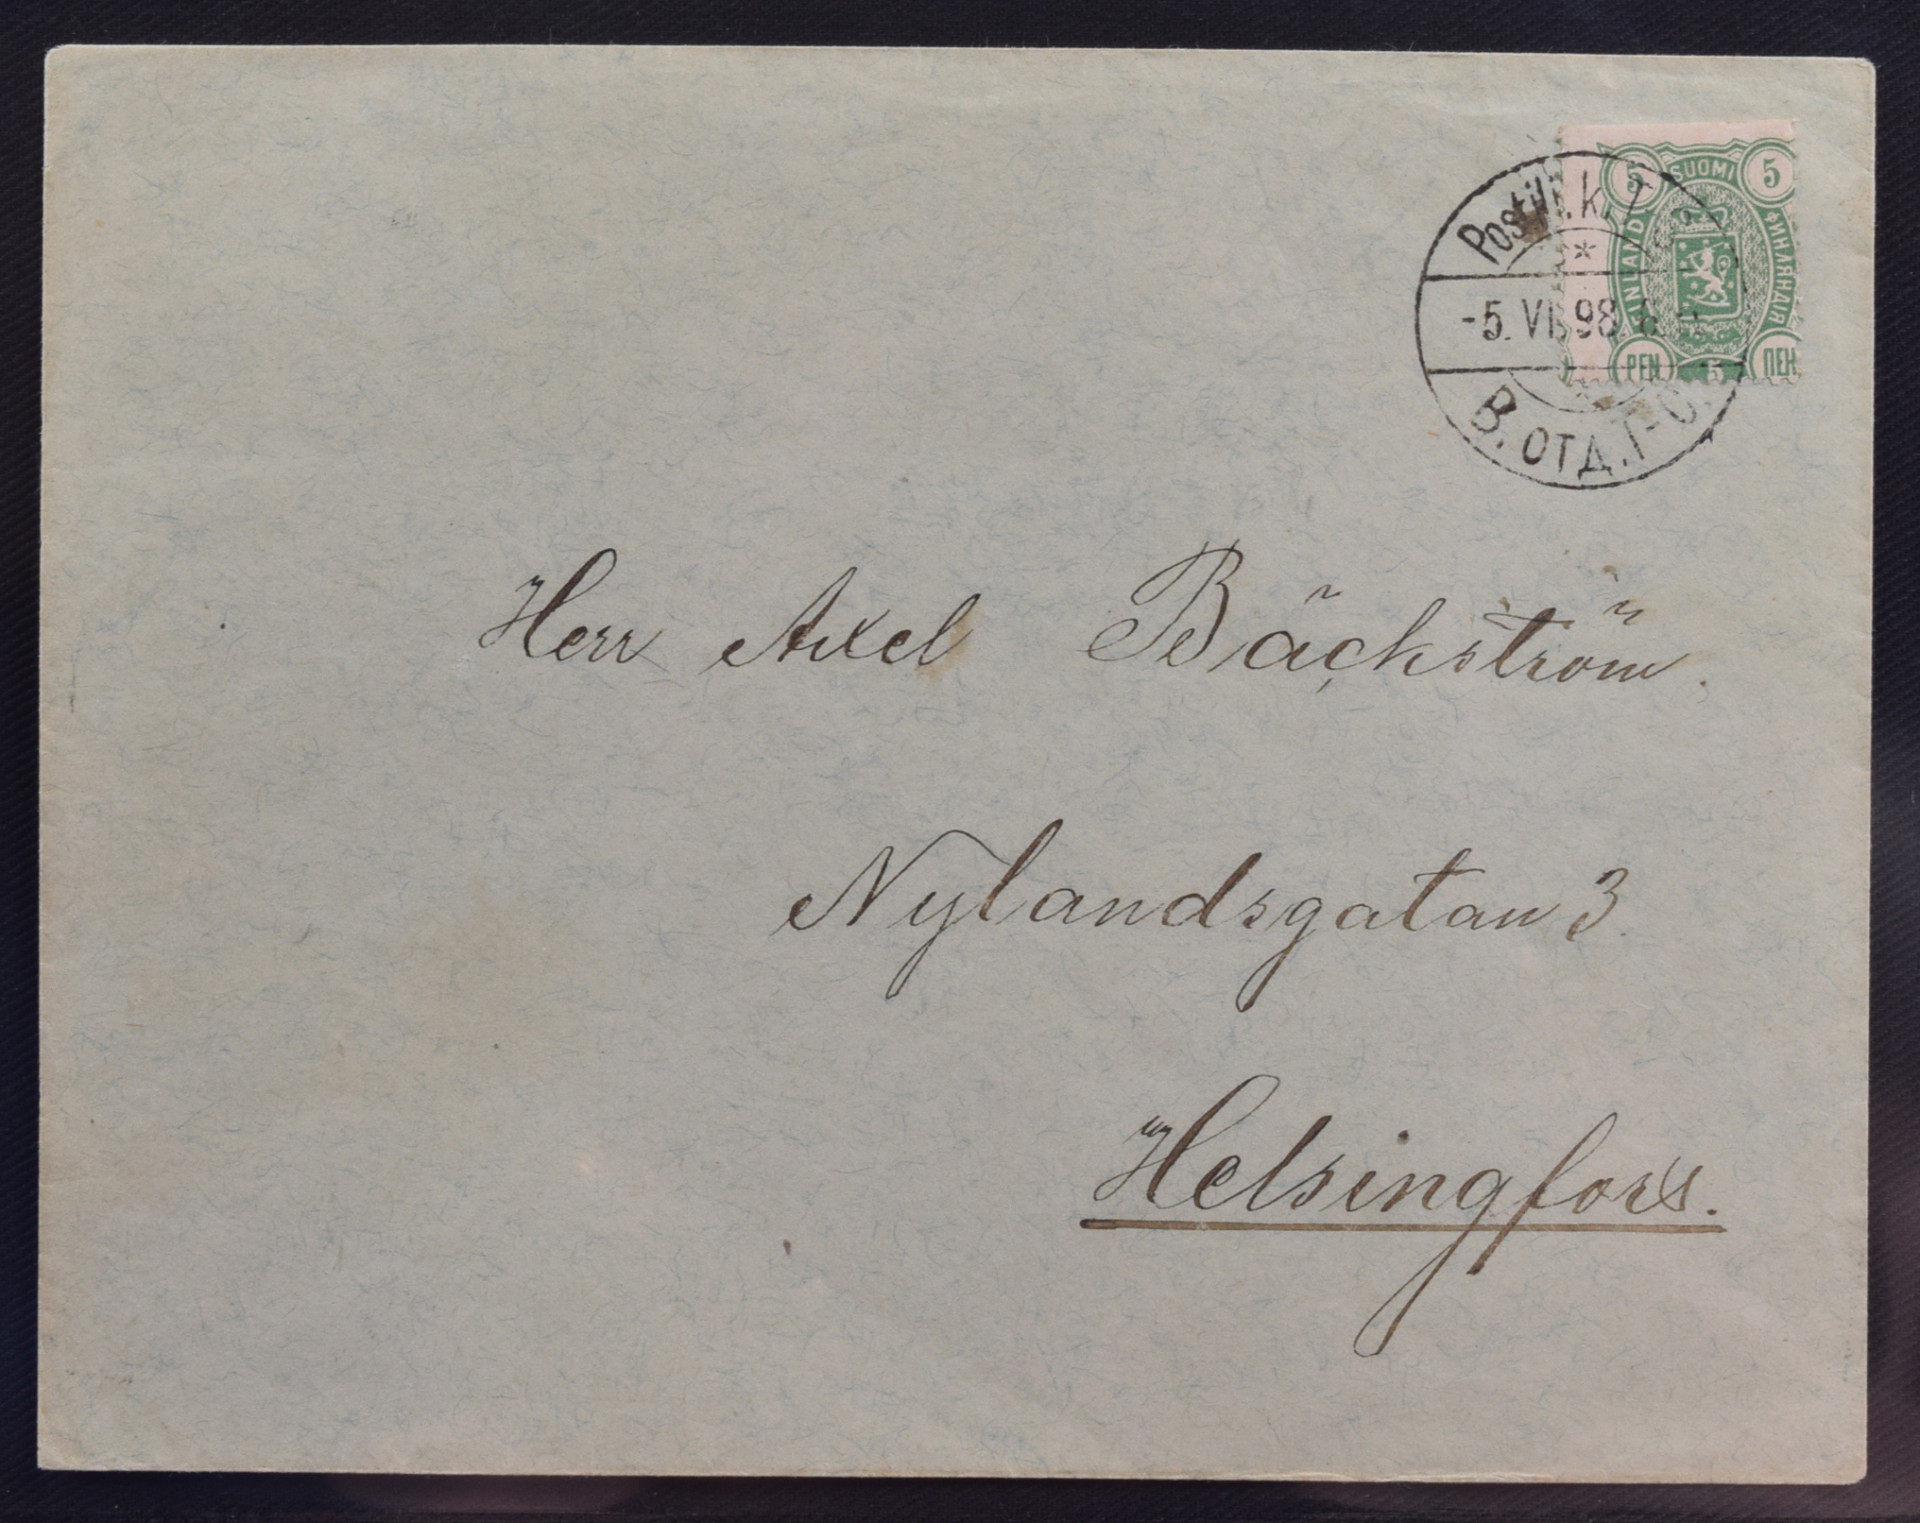 5 SUOMI 5
FINLAND ФИНЛЯНДІЯ
PEN 5 ПЕН
-5. VI. 98
В. ОТД. Г-О.
Herr Axel Bäckström.
Nylandsgatan 3.
Helsingfors.